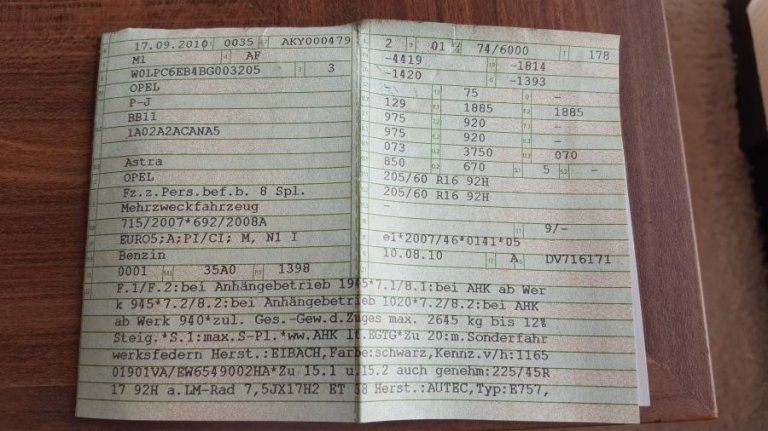 17.09.2010 0035 AKY000479 2 01 74/6000 178
M1 AF -4419 -1814
W0LPC6EB4BG003205 3 -1420 -1393
OPEL - 75 -
P-J 129 1885 1885
BB11 975 920 -
1A02A2ACANA5 975 920 -
073 3750 070
Astra 850 670 5 -
OPEL 205/60 R16 92H
Fz.z.Pers.bef.b. 8 Spl. 205/60 R16 92H
Mehrzweckfahrzeug -
715/2007*692/2008A 9/-
EURO5;A;PI/CI; M, N1 I e1*2007/46*0141*05
Benzin 10.08.10 A DV716171
0001 35A0 1398
F.1/F.2:bei Anhängebetrieb 1945*7.1/8.1:bei AHK ab Wer
k 945*7.2/8.2:bei Anhängebetrieb 1020*7.2/8.2:bei AHK
ab Werk 940*zul. Ges.-Gew.d.Zuges max. 2645 kg bis 12%
Steig.*S.1:max.S-Pl.*ww.AHK lt.EGTG*Zu 20:m.Sonderfahr
werksfedern Herst.:EIBACH,Farbe:schwarz,Kennz.v/h:1165
01901VA/EW6549002HA*Zu 15.1 u.15.2 auch genehm:225/45R
17 92H a.LM-Rad 7,5JX17H2 ET 38 Herst.:AUTEC,Typ:E757,